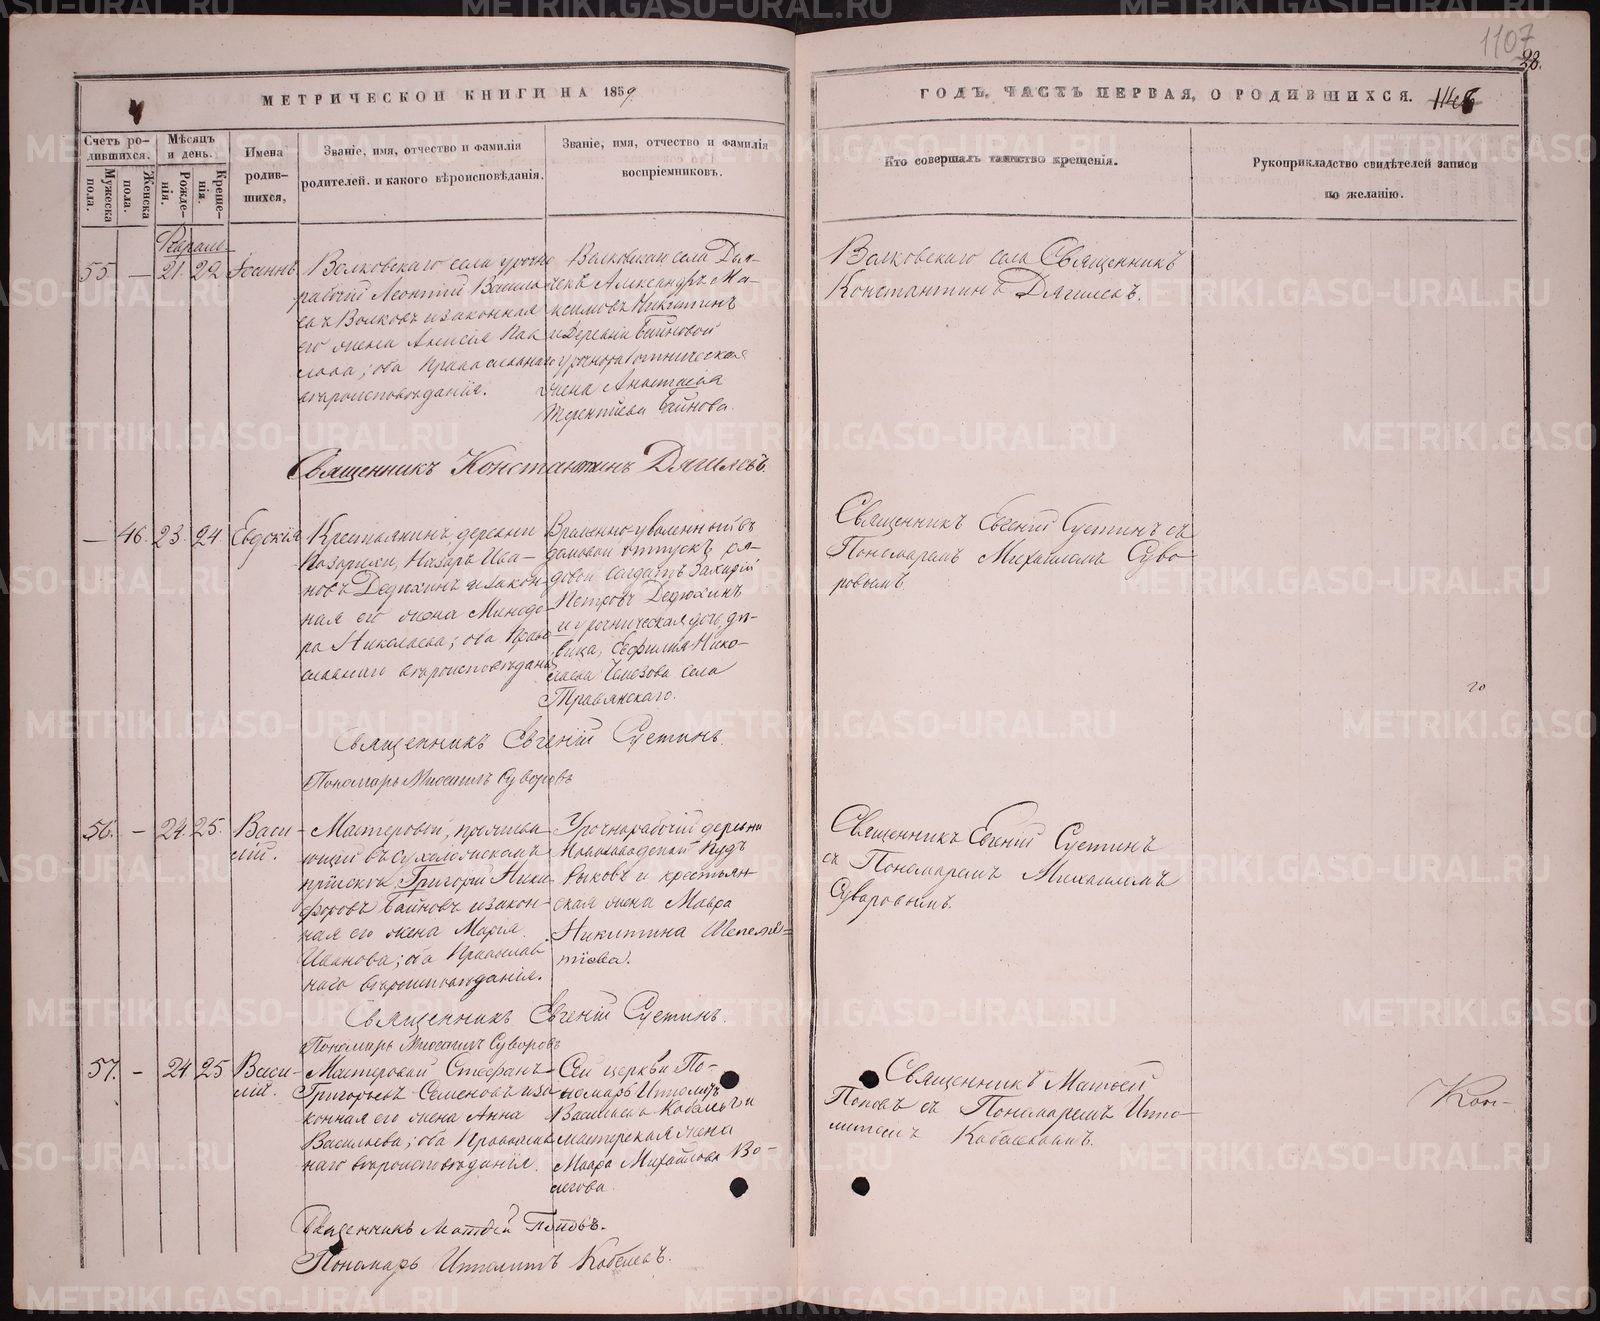 1107
28.
МЕТРИЧЕСКОЙ КНИГИ НА 1859
ГОДЪ, ЧАСТЬ ПЕРВАЯ, О РОДИВШИХСЯ.
Счетъ родившихся.
Мужеска пола.
Женска пола.
Мѣсяцъ и день.
Рожденія.
Крещенія.
Имена родившихся.
Званіе, имя, отчество и фамилія
родителей, и какого вѣроисповѣданія.
Званіе, имя, отчество и фамилія
воспріемниковъ.
Кто совершалъ таинство крещенія.
Рукоприкладство свидѣтелей записи
по желанію.
55 — 21. 22 Іоаннъ
Волковскаго села урочно
рабочій Леонтій Василь
евъ Волковъ и законная
его жена Анисія Пав
лова; оба Православнаго
вѣроисповѣданія.
Волковскаго села Дья-
чекъ Александръ Ма-
ксимовъ Никитинъ
и Деревни Байновой
урочноработническая
жена Анастасія
Терентьева Байнова.
Волковскаго села Священникъ
Константинъ Дягилевъ.
Священникъ Константинъ Дягилевъ.
— 46. 23. 24. Евдокія
Крестьянинъ деревни
Назаръ Ива-
новъ Дедюхинъ и закон-
ная его жена Минодо-
ра Николаева; оба Право
славнаго вѣроисповѣданія
Временно-уволенный въ
домовой отпускъ ря-
довой солдатъ Захарій
Петровъ Дедюхинъ
и урочническая дочь, дѣ-
вица, Евфимія Нико-
лаева села
Травянскаго.
Священникъ Евгеній Сустинъ съ
Пономаремъ Михаиломъ Суво-
ровымъ.
Священникъ Евгеній Сустинъ.
Пономарь Михаилъ Суворовъ
56. — 24. 25. Васи-
лій.
Мастеровой, прожива
ющій въ Сухоложскомъ
пріискѣ, Григорій Ники
форовъ Байновъ и закон-
ная его жена Марія
Иванова; оба Православ
наго вѣроисповѣданія.
Урочнорабочій деревни
и крестьян
ская жена Мавра
Никитина Шепеле-
тюва.
Священникъ Евгеній Сустинъ
съ Пономаремъ Михаиломъ
Суворовымъ.
Священникъ Евгеній Сустинъ.
Пономарь Михаилъ Суворовъ
57. — 24 25 Васи-
лій.
Мастеровой Стефанъ
Григорьевъ Семеновъ и за
конная его жена Анна
Васильева; оба Православ
наго вѣроисповѣданія.
Сей церкви По-
номарь Ипполитъ
Васильевъ Кобелевъ и
мастерская жена
Мавра Михайлова Во-
легова.
Священникъ Матѳей
Поповъ съ Пономаремъ Иппо-
литомъ Кобелевымъ.
Кон-
Священникъ Матѳей Поповъ.
Пономарь Ипполитъ Кобелевъ.
METRIKI.GASO-URAL.RU